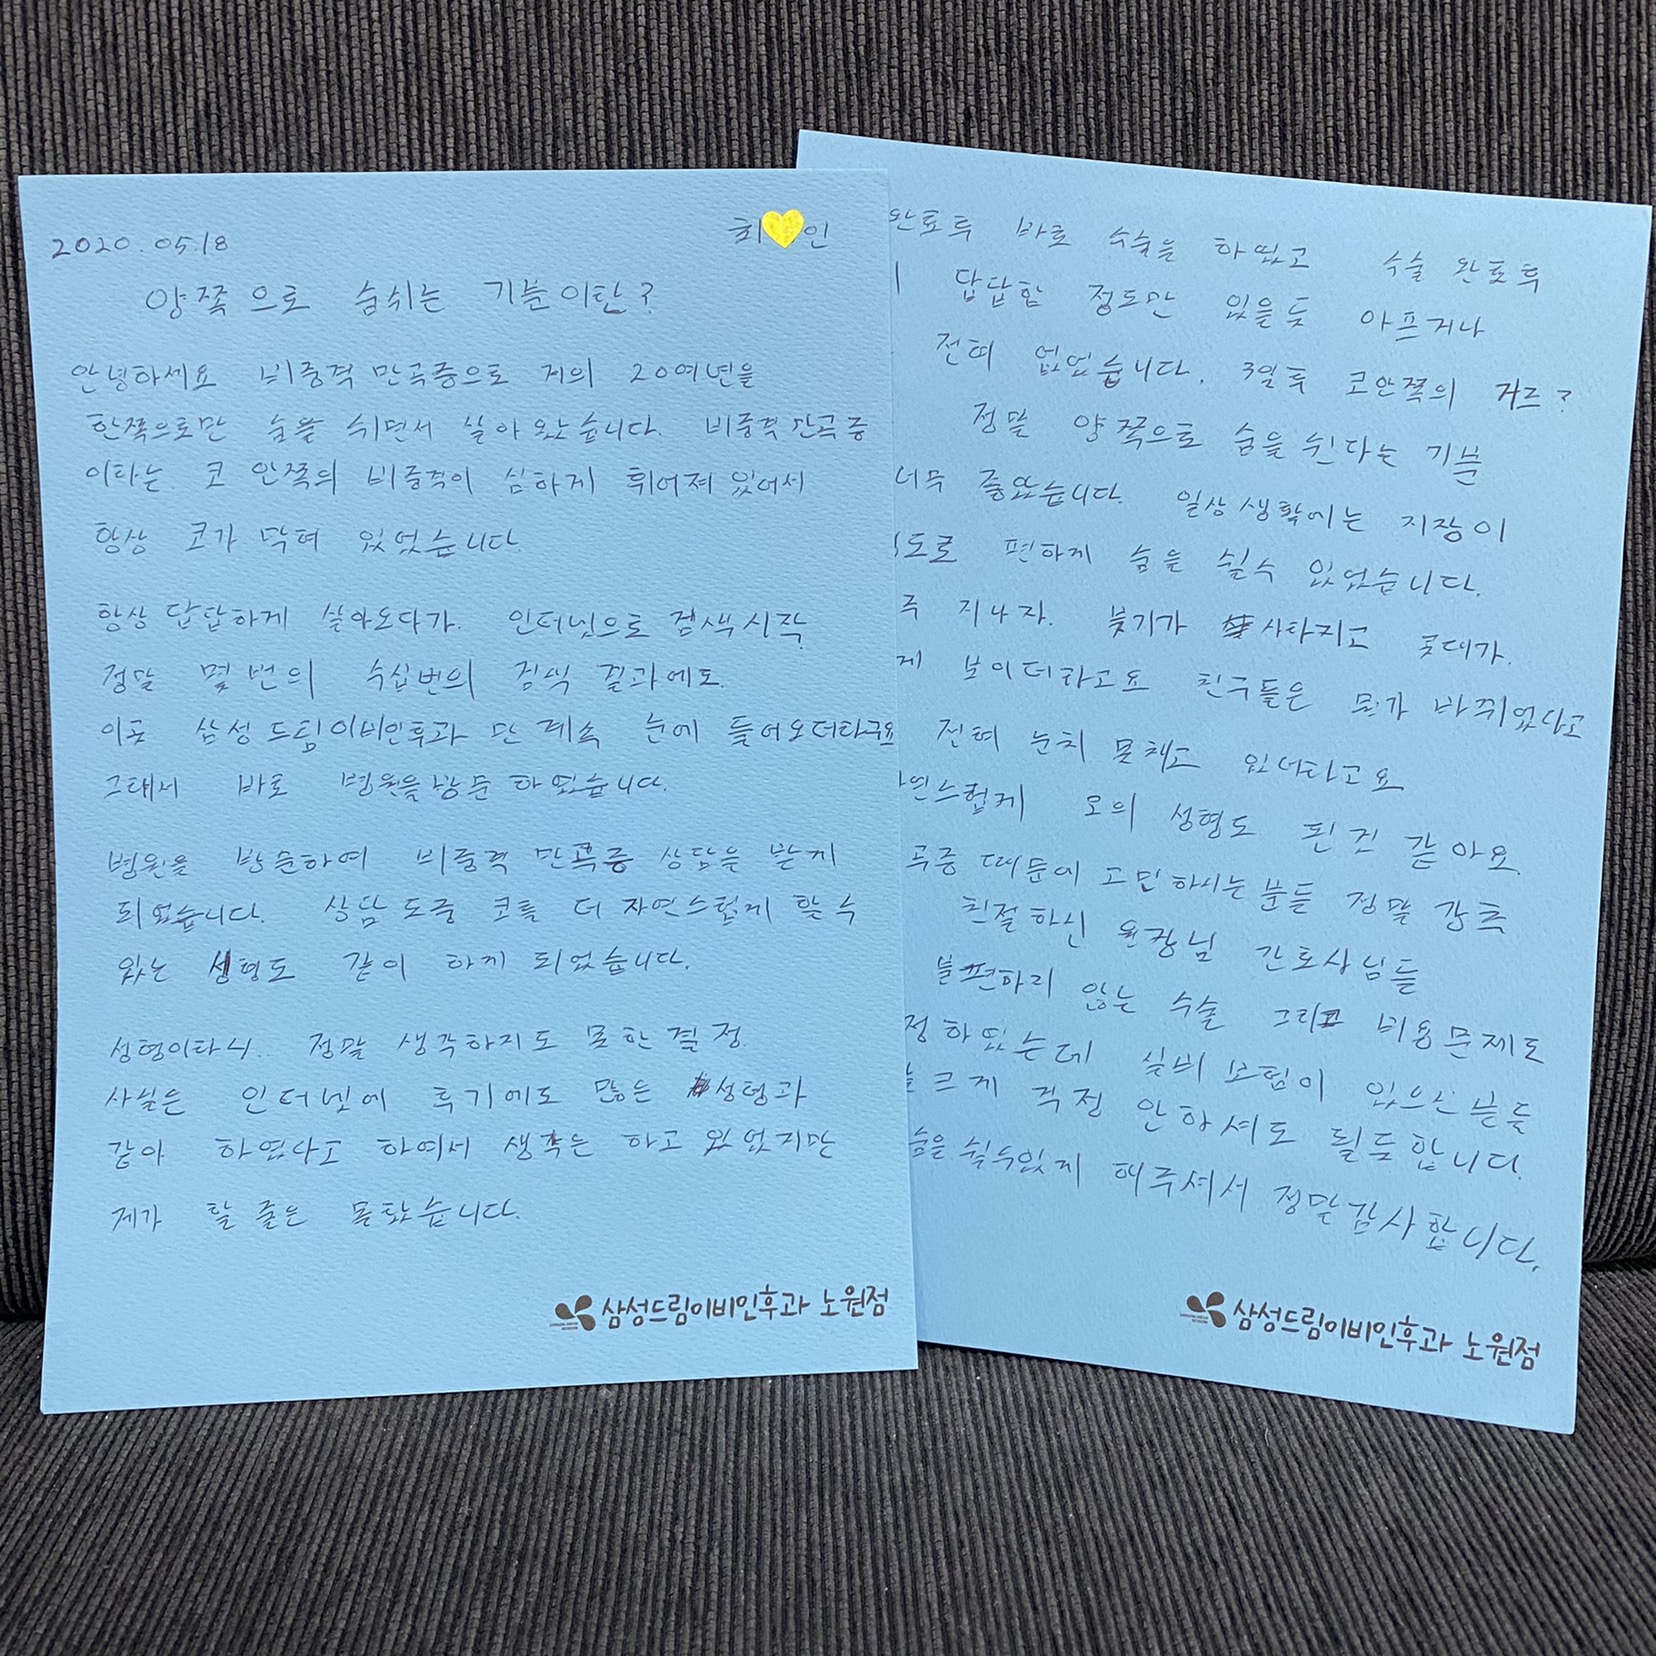 2020.05.18
최 인
양쪽으로 숨쉬는 기분이란?
안녕하세요 비중격 만곡증으로 저의 20여년을
한쪽으로만 숨을 쉬면서 살아 왔습니다. 비중격 만곡증
이라는 코 안쪽의 비중격이 심하게 휘어져 있어서
항상 코가 막혀 있었습니다.
항상 답답하게 살아오다가. 인터넷으로 검색시작
정말 몇 번의 수십번의 검색 결과에도.
이곳 삼성드림이비인후과 만 계속 눈에 들어오더라구요
그래서 바로 병원을 방문 하였습니다.
병원을 방문하여 비중격 만곡증 상담을 받게
되었습니다. 상담 도중 코를 더 자연스럽게 할수
있는 성형도 같이 하게 되었습니다.
성형이라니.. 정말 생각하지도 못한 결정.
사실은 인터넷에 후기에도 많은 성형과
같아 하였다고 하여서 생각은 하고 있었지만
제가 할 줄은 몰랐습니다.
삼성드림이비인후과 노원점
완료후 바로 수술을 하였고 수술 완료후
답답함 정도만 있을듯 아프거나
전혀 없었습니다. 3일후 코안쪽의 거즈?
정말 양쪽으로 숨을 쉰다는 기분
너무 좋았습니다. 일상생활에는 지장이
정도로 편하게 숨을 쉴수 있었습니다.
주 지나자. 붓기가 사라지고 콧대가.
게 보이더라고요 친구들은 뭔가 바뀌었다고
전혀 눈치 못채고 있더라고요
자연스럽게 코의 성형도 된것 같아요.
곡증 때문에 고민하시는분들 정말 강추
친절하신 원장님 간호사님들
불편하리 않는 수술 그리고 비용문제도
정하있는데 실비 보험이 있으신분들
크게 걱정 안하셔도 될듯합니다.
숨을 쉴수있게 해주셔서 정말감사합니다.
삼성드림이비인후과 노원점